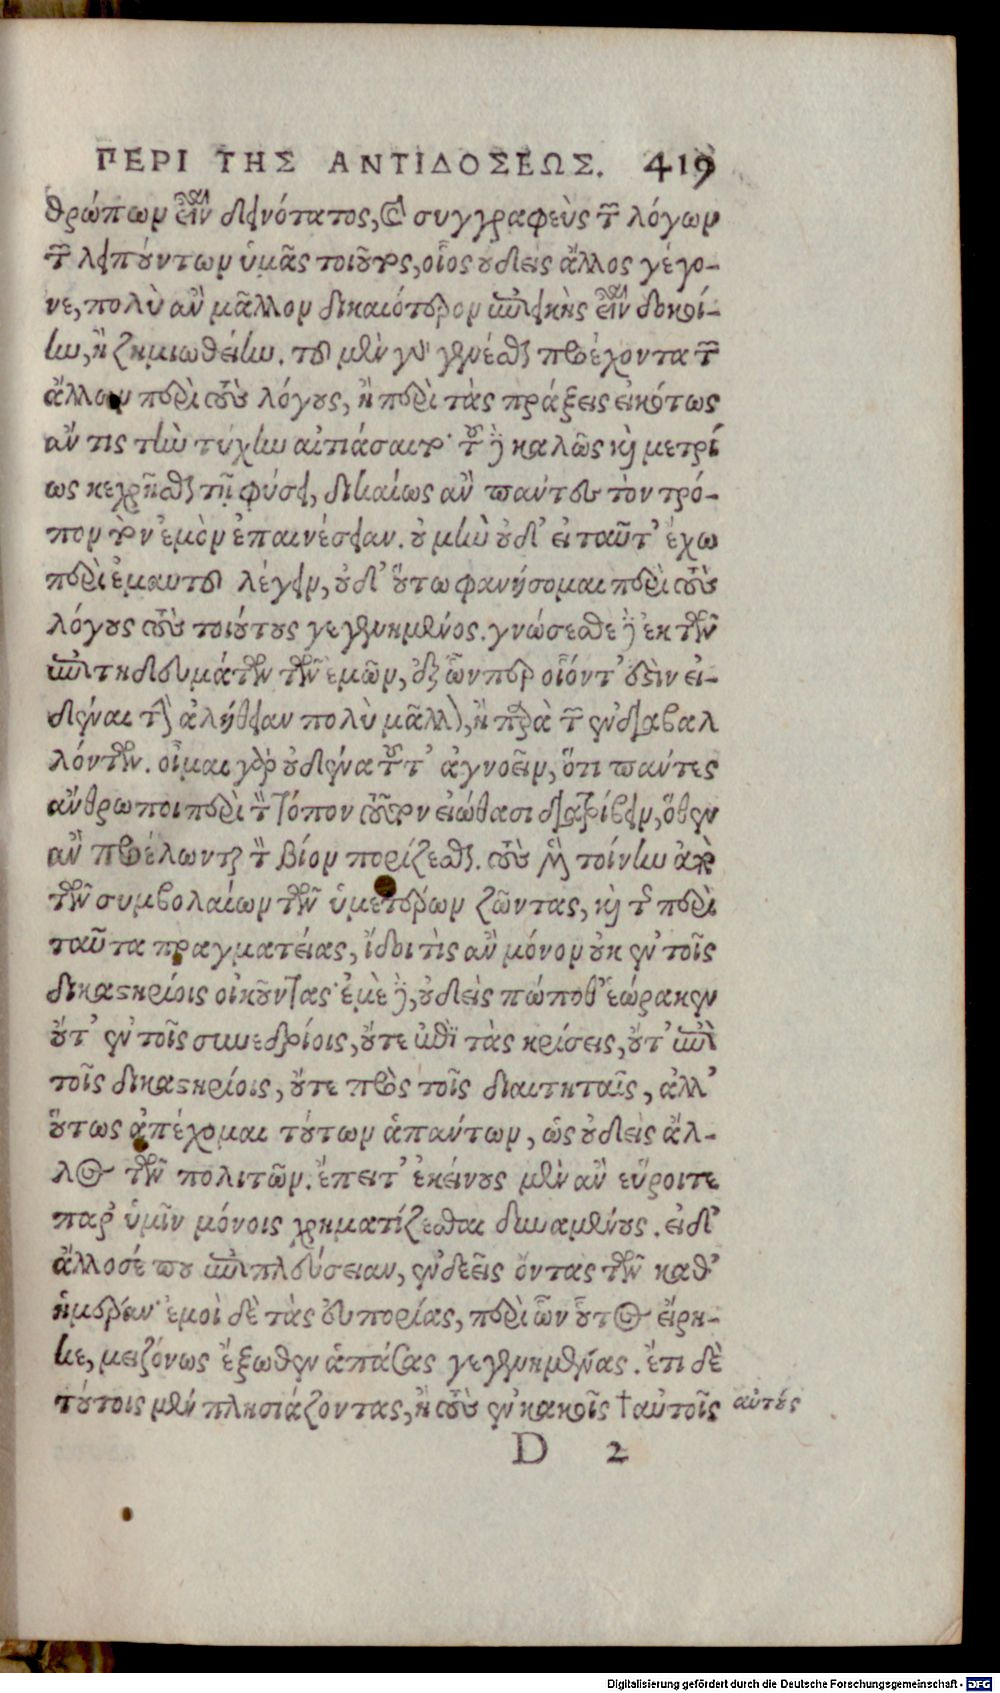 ΠΕΡΙ ΤΗΣ ΑΝΤΙΔΟΣΕΩΣ. 419
θρώπων εἶναι δεινότατος, καὶ συγγραφεὺς τῶν λόγων
τῶν λυπούντων ὑμᾶς τοιοῦτος, οἷος οὐδεὶς ἄλλος γέγο-
νε, πολὺ ἂν μᾶλλον δικαιότερον ἐπιεικὴς εἶναι δοκοί-
ην, ἢ ζημιωθείην. τοῦ μὲν γὰρ γενέσθαι προέχοντα τῶν
ἄλλων περὶ τοὺς λόγους, ἢ περὶ τὰς πράξεις εἰκότως
ἄν τις τὴν τύχην αἰτιάσαιτο· τοῦ δὲ καλῶς καὶ μετρί
ως κεχρῆσθαι τῇ φύσει, δικαίως ἂν πάντες τὸν τρό-
πον τὸν ἐμὸν ἐπαινέσειαν. οὐ μὴν οὐδ' εἰ ταῦτ' ἔχω
περὶ ἐμαυτοῦ λέγειν, οὐδ' οὕτω φανήσομαι περὶ τοὺς
λόγους τοὺς τοιούτους γεγενημένος. γνώσεσθε δὲ ἐκ τῶν
ἐπιτηδευμάτων τῶν ἐμῶν, ἐξ ὧνπερ οἷόντ' ἐστὶν εἰ-
δέναι τὴν ἀλήθειαν πολὺ μᾶλλον, ἢ παρὰ τῶν ἐνδιαβαλ
λόντων. οἶμαι γὰρ οὐδένα τοῦτ' ἀγνοεῖν, ὅτι πάντες
ἄνθρωποι περὶ τὸν τόπον τοῦτον εἰώθασι διατρίβειν, ὅθεν
ἂν προέλωνται τὸν βίον πορίζεσθαι. τοὺς μὲν τοίνυν ἀπὸ
τῶν συμβολαίων τῶν ὑμετέρων ζῶντας, καὶ τῆς περὶ
ταῦτα πραγματείας, ἴδοι τὶς ἂν μόνον οὐκ ἐν τοῖς
δικαστηρίοις οἰκοῦντας· ἐμὲ δὲ, οὐδεὶς πώποθ' ἑώρακεν
οὔτ' ἐν τοῖς συνεδρίοις, οὔτε περὶ τὰς κρίσεις, οὔτ' ἐπὶ
τοῖς δικαστηρίοις, οὔτε πρὸς τοῖς διαιτηταῖς, ἀλλ'
οὕτως ἀπέχομαι τούτων ἁπάντων, ὡς οὐδεὶς ἄλ-
λος τῶν πολιτῶν. ἔπειτ' ἐκείνους μὲν ἂν εὕροιτε
παρ' ὑμῖν μόνοις χρηματίζεσθαι δυναμένους. εἰ δ'
ἄλλοσέ που ἐπιπλεύσειαν, ἐνδεεῖς ὄντας τῶν καθ'
ἡμέραν· ἐμοὶ δὲ τὰς εὐπορίας, περὶ ὧν οὗτος εἴρη-
κε, μειζόνως ἔξωθεν ἁπάσας γεγενημένας. ἔτι δὲ
τούτοις μὲν πλησιάζοντας, ἢ τοὺς ἐν κακοῖς † αὐτοῖς
αὐτούς
D 2
Digitalisierung gefördert durch die Deutsche Forschungsgemeinschaft - DFG